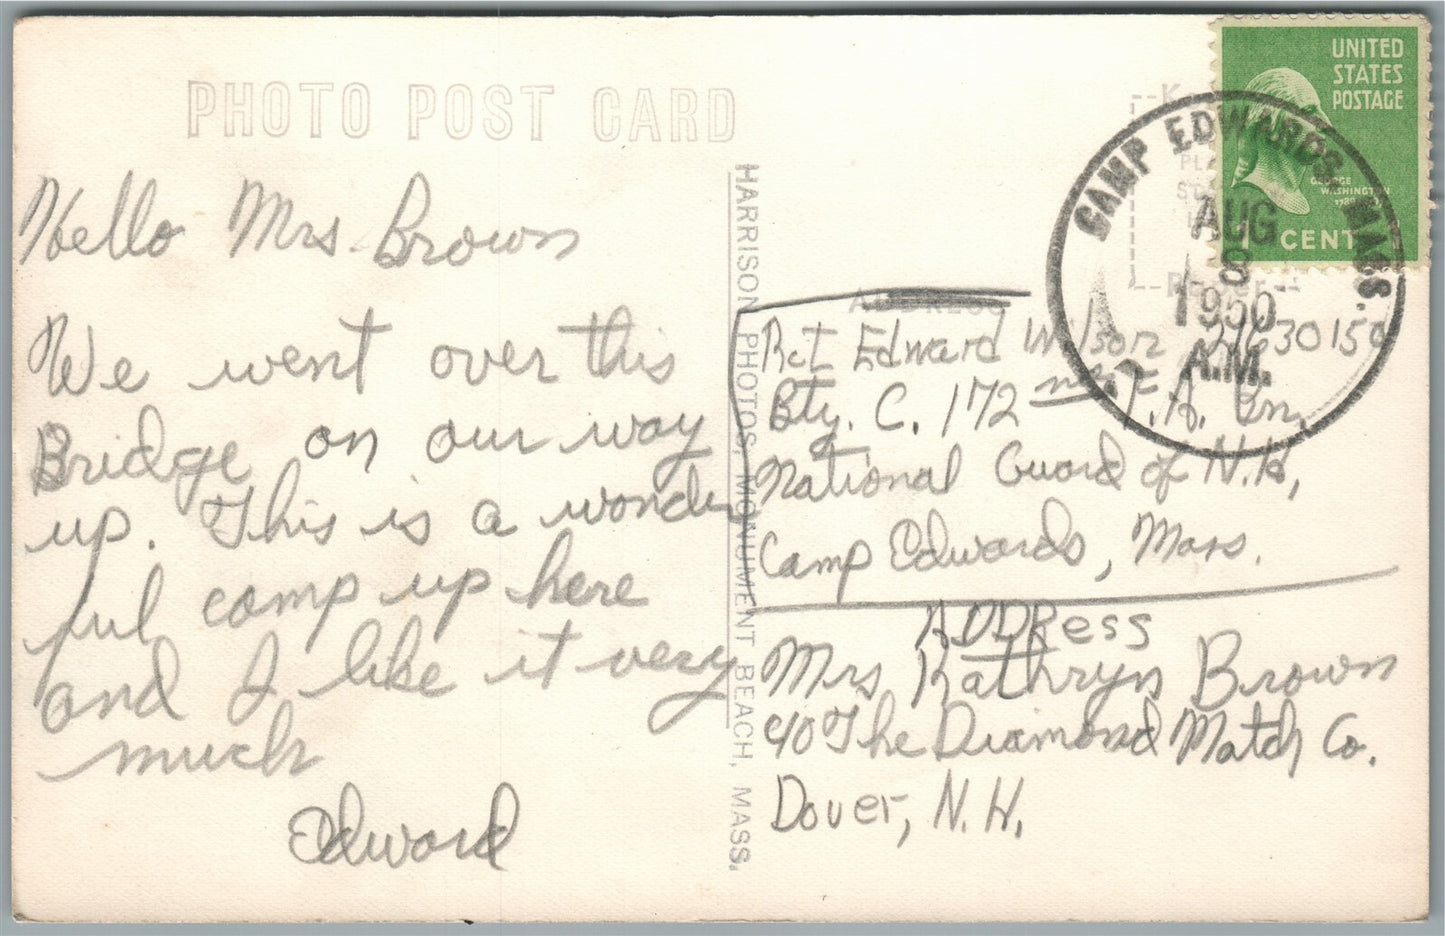 PHOTO POST CARD
Hello Mrs Brown
We went over this
Bridge on our way
up. This is a wonder
ful camp up here
and I like it very
much
Edward
HARRISON PHOTOS, MONUMENT BEACH, MASS.
UNITED
STATES
POSTAGE
GEORGE
WASHINGTON
1 CENT
CAMP EDWARDS MASS.
AUG
8
1950
A.M.
ADDRESS
Rct Edward Wilson
Bty. C. 172 F.A. Bn,
National Guard of N.H,
Camp Edwards, Mass.
ADDRess
Mrs Kathryn Brown
c/o The Diamond Match Co.
Dover, N.H.